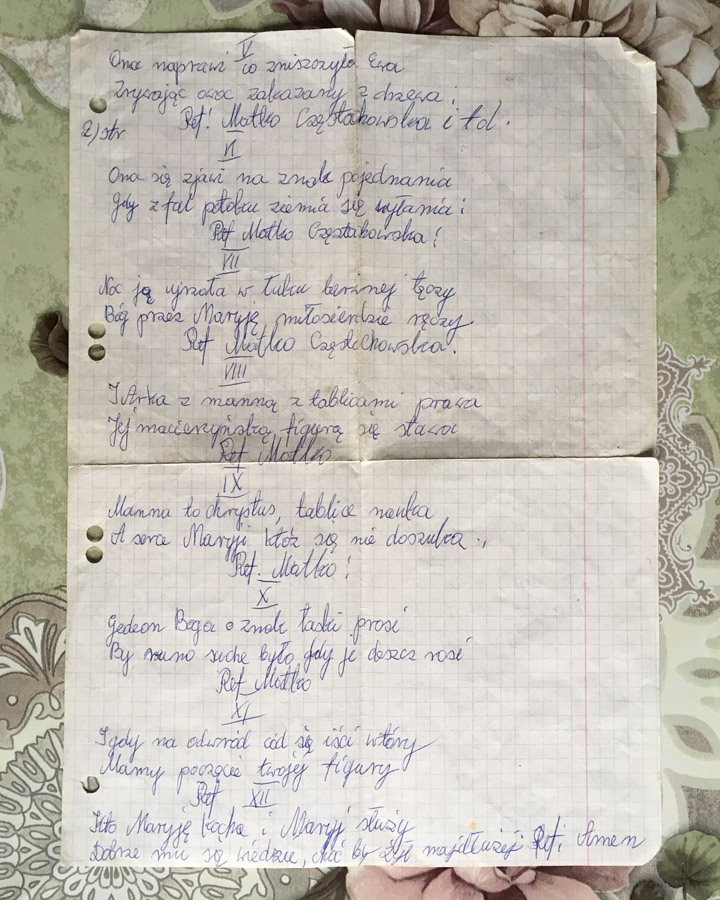 V
Ona naprawi co zniszczyła Ewa
Zrywając owoc zakazany z drzewa;
2) str
Ref. Matko Częstakowska i td.
VI
Ona się zjawi na znak pojednania
Gdy z fal potoku ziemia się wyłania;
Ref Matko Częstakowska!
VII
Noc ją ujrzała w łuku barwnej tęczy
Bóg przez Maryję miłosierdzie ręczy.
Ref Matko Częstochowska.
VIII
I Arka z manną z tablicami prawa
Jej macierzyńską figurą się stawa
Ref Matko
IX
Manna to chrystus, tablice nauka
A serca Maryji któż się nie doszuka.,
Ref. Matko!
X
Gedeon Boga o znak łaski prosi
By runo suche było gdy je deszcz rosi
Ref Matko
XI
I gdy na odwród cód się iści wtóry
Mamy poczęcie twojej figury
Ref
XII
Kto Maryję kocha i Maryji służy
Dobrze mu się wiedzie, choć by żył najdłużej Ref; Amen